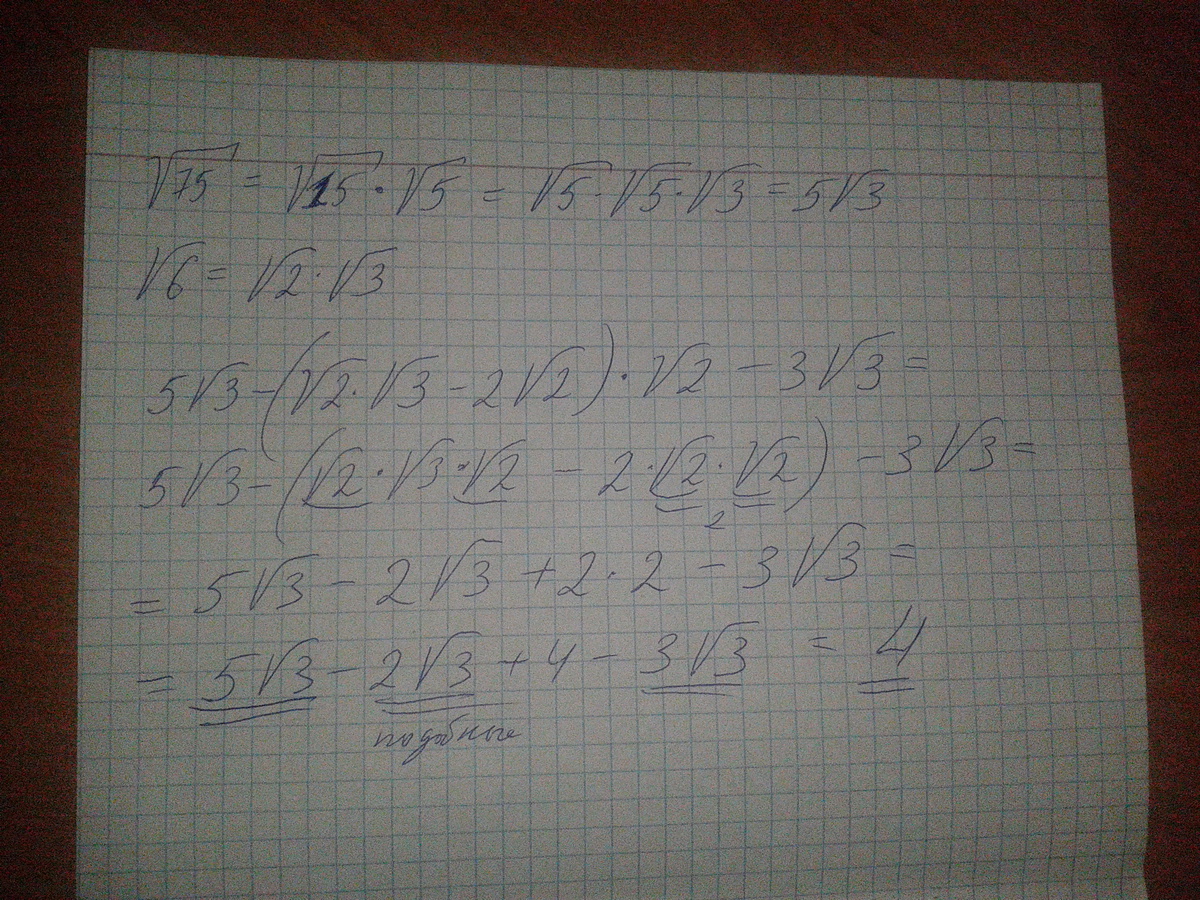 √75 = √15 · √5 = √5 · √5 · √3 = 5√3
√6 = √2 · √3
5√3 - (√2 · √3 - 2√2) · √2 - 3√3 =
5√3 - (√2 · √3 · √2 - 2 · √2 · √2) - 3√3 =
2
= 5√3 - 2√3 + 2 · 2 - 3√3 =
= 5√3 - 2√3 + 4 - 3√3 = 4
подобные